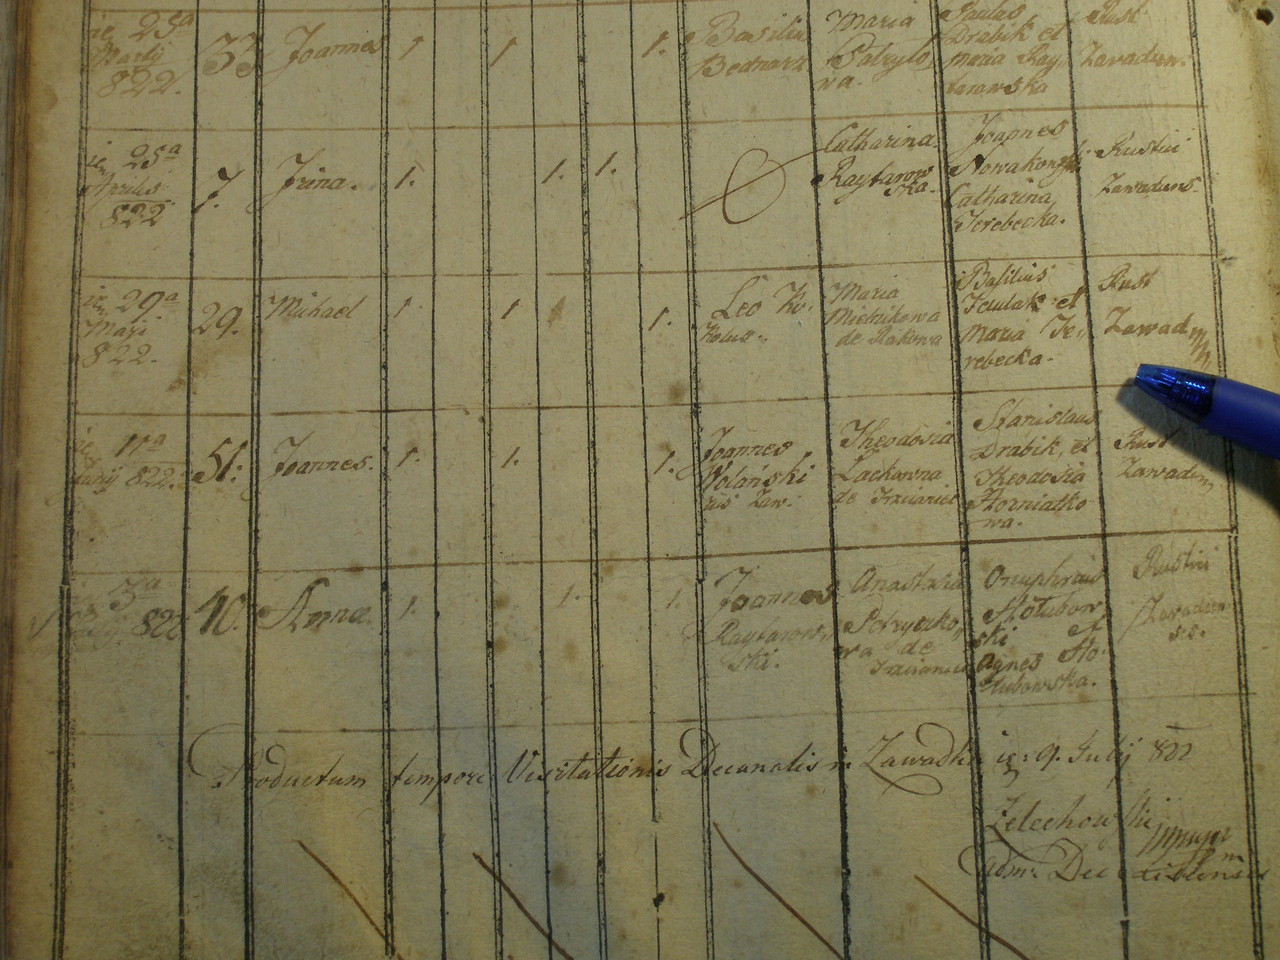 25ª
Martij
822.
33
Joannes
1
1
1.
Basilius
Bednarz
Maria
wa.
Paulus
Drabik et
Maria Ray
tarowska
Rust
Zavadien.
25ª
Aprilis
822
7.
Irina.
1.
1.
1.
Catharina
Raytarow
ska.
Joannes
Catharina
Terebecka.
Rustici
Zawadiens.
29ª
Maji
822.
29.
Michael
1.
1
1.
Leo
Maria
Mielnikowa
de Rakowa
Basilius
et
Maria Te
rebecka.
Rust
Zawad
11ª
822.
51.
Joannes.
1.
1.
1.
Joannes
Wolański
rus Zaw.
Theodosia
de
Stanislaus
Drabik, et
Theodosia
Horniatko
wa.
Rust
Zawadien
3ª
822
40.
Anna
1.
1.
1.
Joannes
Raytarow
ski.
Anastasia
wa de
Onuphrius
Hołubow
ski et
Agnes Ho
łubowska.
Rustici
Zawadien
sis.
Productum tempore Visitationis Decanalis in Zawadka 9. Julij 822
Zelechowski
Adm: